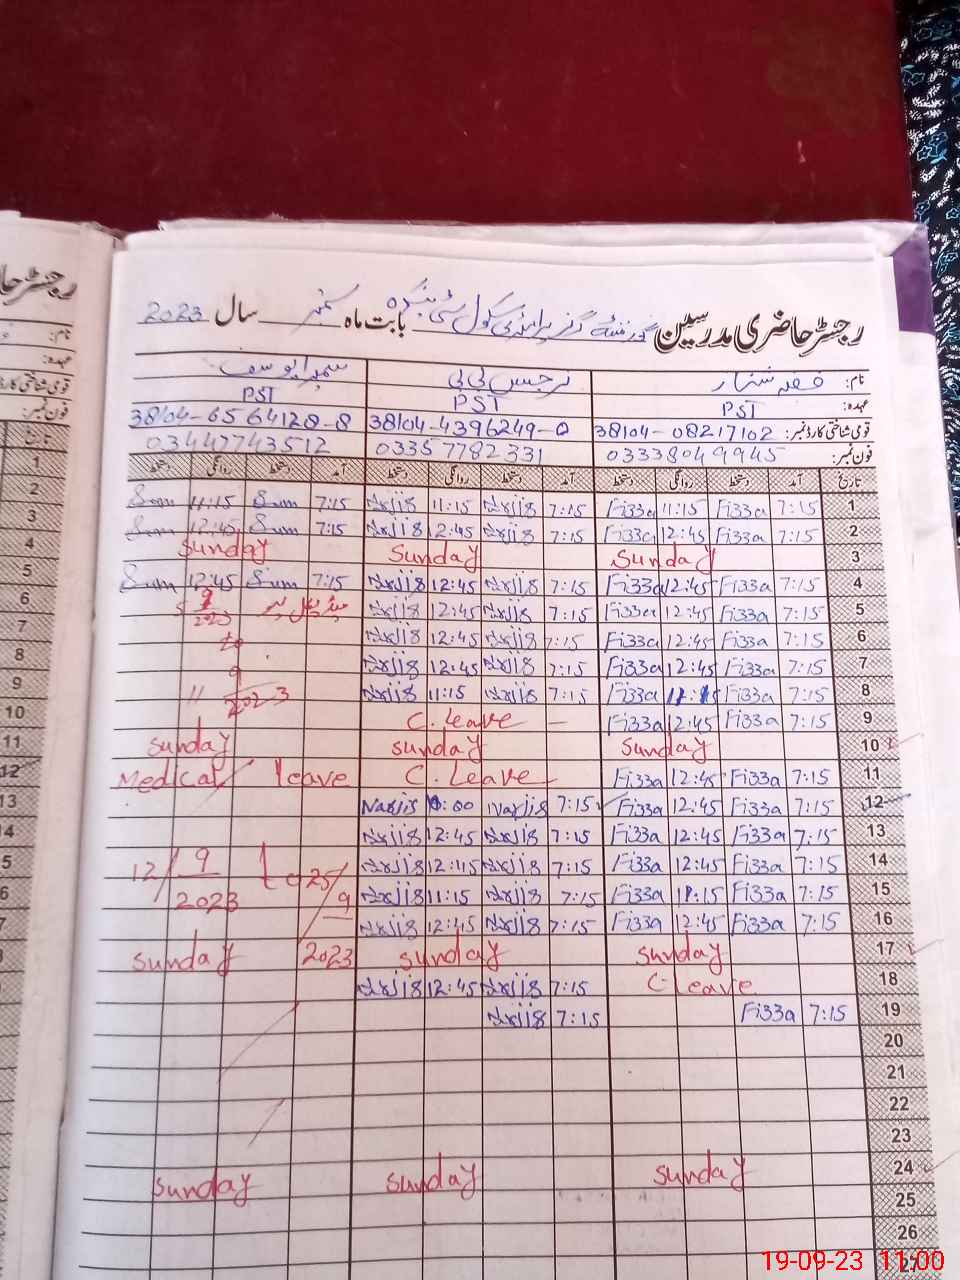 رجسٹر حاضری مدرسین گورنمنٹ گرلز پرائمری سکول بابت ماہ ستمبر سال 2023
نام: فضہ ستار نرجس بی بی سمیرا یوسف
عہدہ: PST PST PST
قومی شناختی کارڈ نمبر: 38104-08217102 38104-4396249-0 38104-6564128-8
فون نمبر: 03338049945 03357782331 03447743512
تاریخ آمد دستخط روانگی دستخط آمد دستخط روانگی دستخط آمد دستخط روانگی دستخط
1 7:15 Fi33a 11:15 Fi33a 7:15 Narjis 11:15 Narjis 7:15 Sum 11:15 Sum
2 7:15 Fi33a 12:45 Fi33a 7:15 Narjis 12:45 Narjis 7:15 Sum 12:45 Sum
3 Sunday Sunday Sunday
4 7:15 Fi33a 12:45 Fi33a 7:15 Narjis 12:45 Narjis 7:15 Sum 12:45 Sum
5 7:15 Fi33a 12:45 Fi33a 7:15 Narjis 12:45 Narjis 5 9 2023
6 7:15 Fi33a 12:45 Fi33a 7:15 Narjis 12:45 Narjis to
7 7:15 Fi33a 12:45 Fi33a 7:15 Narjis 12:45 Narjis
8 7:15 Fi33a 11:15 Fi33a 7:15 Narjis 11:15 Narjis 11 9 2023
9 7:15 Fi33a 12:45 Fi33a C. Leave
10 Sunday Sunday Sunday
11 7:15 Fi33a 12:45 Fi33a C. Leave Medical leave
12 7:15 Fi33a 12:45 Fi33a 7:15 Narjis Narjis
13 7:15 Fi33a 12:45 Fi33a 7:15 Narjis 12:45 Narjis
14 7:15 Fi33a 12:45 Fi33a 7:15 Narjis 12:45 Narjis 12/9 to 25/9
15 7:15 Fi33a 11:15 Fi33a 7:15 Narjis 11:15 Narjis 2023
16 7:15 Fi33a 12:45 Fi33a 7:15 Narjis 12:45 Narjis
17 Sunday Sunday 2023 Sunday
18 C-Leave 7:15 Narjis 12:45 Narjis
19 7:15 Fi33a 7:15 Narjis
20
21
22
23
24 Sunday Sunday Sunday
25
26
27
رجسٹر حا
نام:
عہدہ:
قومی شناختی کارڈ
فون نمبر:
تاریخ
1
2
3
4
5
6
7
8
9
10
11
12
13
19-09-23 11:00